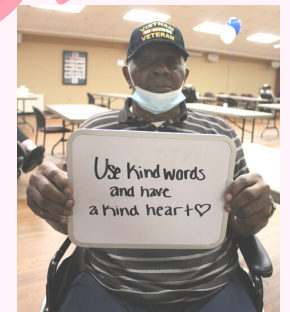 VIETNAM
VETERAN
Use Kind words
and have
a Kind heart♡